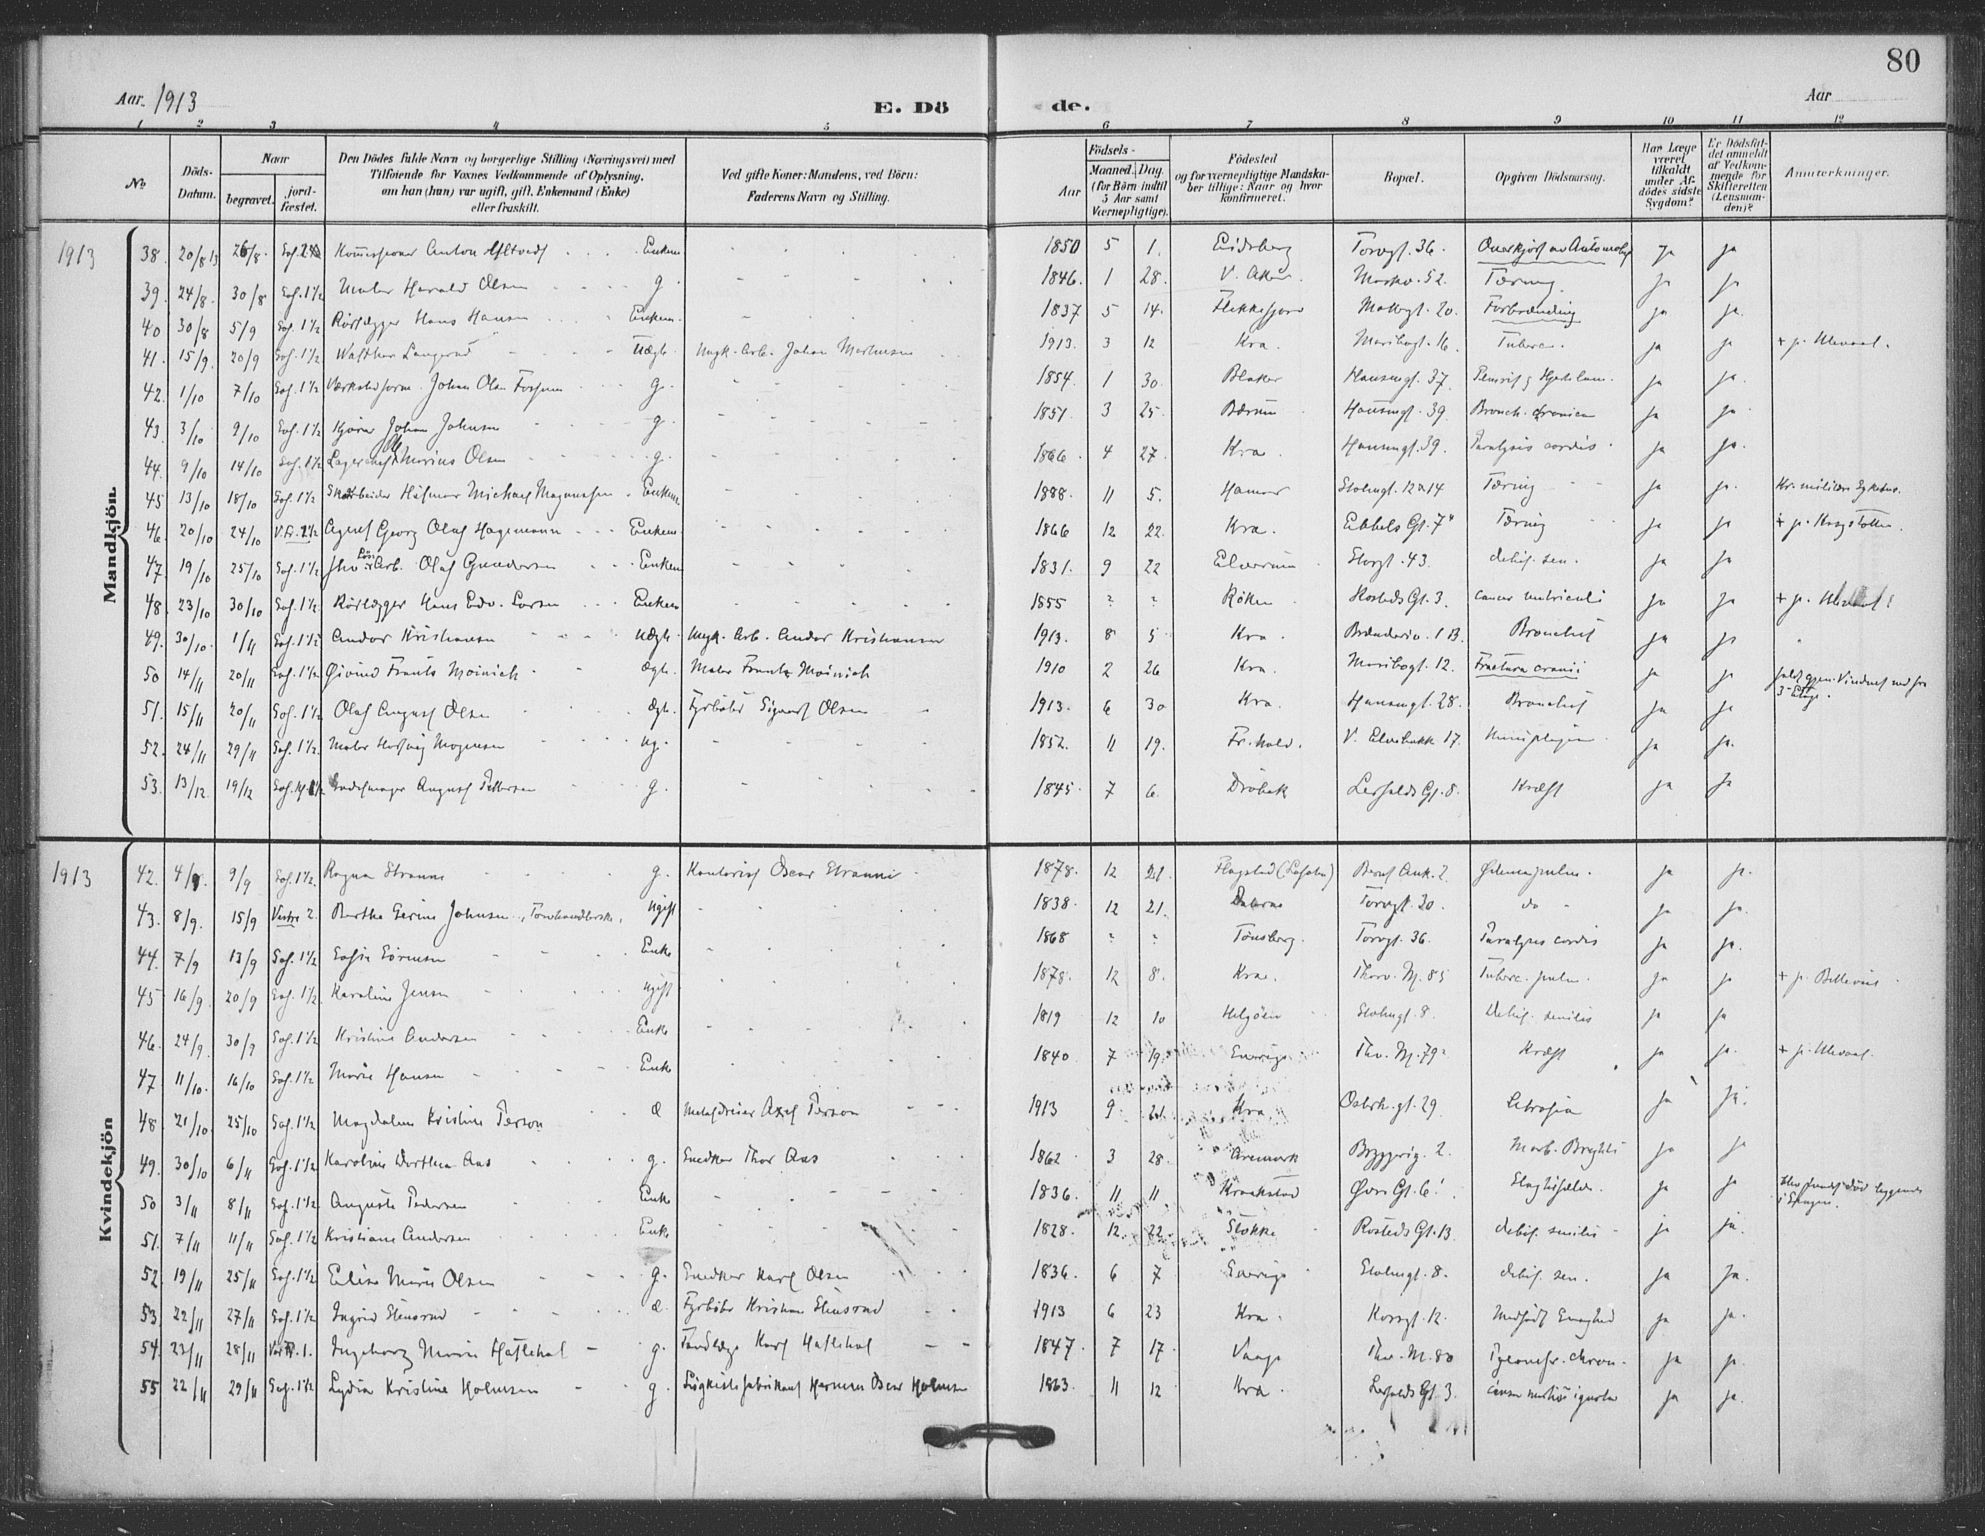 80
Aar. 1913
E. Dö
de.
Aar
1 2 3 4 5 6 7 8 9 10 11 12
No
Döds-
Datum.
Naar
begravet.
jord-
fæstet.
Den Dödes fulde Navn og borgerlige Stilling (Næringsvei) med
Tilföiende for Voxnes Vedkommende af Oplysning,
om han (hun) var ugift, gift, Enkemand (Enke)
eller fraskilt.
Ved gifte Koner: Mandens, ved Börn:
Faderens Navn og Stilling.
Födsels-
Aar
Maaned. Dag.
(for Börn indtil
5 Aar samt
Værnepligtige).
Födested
og for værnepligtige Mandska-
ber tillige: Naar og hvor
konfirmeret.
Bopæl.
Opgiven Dödsaarsag.
Har Læge
været
tilkaldt
under Af-
dödes sidste
Sygdom?
Er Dödsfal-
det anmeldt
af Vedkom-
mende for
Skifteretten
(Lensman-
den)?
Anmærkninger.
Mandkjön.
1913 38. 20/8 13 26/8. Anton Enkem 1850 5 1. Eidsberg Torvgt. 36. Overkjørt av Automobil ja ja
39. 24/8. 30/8 Sof. 1 1/2 Maler Harald Olsen g. 1846. 1 28. V. Aker. Markv. 52. Tæring ja ja
40 30/8 5/9 Sof. 1 1/2 Rörlægger Hans Hansen Enkem. 1837 5 14. Flekkefjord 20. Forbrænding ja ja.
41. 15/9. 20/9 Sof. 1 1/2 Uægte. Johan 1913. 3 12 Kra. Maribogt. 16. Tuberc. ja ja + p. Ullevaal.
42. 1/10 7/10 Sof. 1 1/2 Johan Olsen g. 1854. 1 30. Blaker Hausmgt. 37. ja ja.
43. 3/10 9/10 Sof. 1 1/2 Johan Johnsen g. 1851. 3 25. Bærum Hausmgt. 39. Bronch. chronica ja ja
44. 9/10 14/10 Sof. 1 1/2 Marius Olsen g. 1866. 4 27. Kra. Hausmgt. 39. Paralysis cordis ja ja.
45 13/10 18/10 Sof. 1 1/2 Hjalmar Michael Magnussen Enkem 1888. 11 5. Hamar Stolmgt. 12 14 Tæring ja ja. Kr. militære Sykehus.
46. 20/10 24/10 V. Fr. Agent Georg Olaf Hagemann Enkem. 1866 12 22. Kra. Eibbels Gt. 7 Tæring ja ja
47. 19/10 25/10 Sof. 1 1/2 Arb. Olaf Gundersen Enkem 1831. 9 22 Elverum Storgt. 43. debil. sen. ja ja
48. 23/10 30/10 Sof. 1 1/2. Rörlægger Hans Edv. Larsen Enkem 1855 ? ? Röken Rosteds Gt. 3. cancer ventriculi ja ja + p. Ullevaal.
49. 30/10. 1/11 Sof. 1 1/2 Andor Kristiansen uægte. Andor Kristiansen 1913. 8 5 Kra. 1 B. Bronchit ja ja
50 14/11 20/11 Sof. 1 1/2 Øivind Frants Moinich ægte. Maler Frants Moinich 1910 2 26 Kra. Maribogt. 12. Fractura cranii ja ja faldt gjen. Vinduet ned fra
3 Etage.
51. 15/11 20/11 Sof. 1 1/2 Olaf August Olsen ægte. Fyrböter Sigurd Olsen 1913. 6 30 Kra. Hausmgt. 28. Bronchit ja ja
52. 24/11 29/11 Sof. 1 1/2. Maler Mogensen ug. 1852. 11 19. Fr. hald. V. Elvebakk 17. ja ja.
53. 13/12 19/12 August Pettersen g. 1845. 7 6. Dröbak Lerfalds Gt. 8. Kræft ja ja
Kvindekjön
1913 42. 4/9. 9/9 Sof. 1 1/2. Ragna Stranne g. Kontorist Oscar Stranne 1878. 12 21. Flagstad (Lofoten) Oedema pulm. ja ja.
43. 8/9. 15/9 Vestre 2. Berthe Serine Johnsen ugift 1838. 12 21. Torvgt. 20. do ja ja.
44. 7/9 13/9 Sof. 1 1/2 Sofie Sörensen Enke 1868 ? ? Tönsberg. Torvgt. 36. Paralyses cordis ja ja.
45 16/9. 20/9 Sof. 1 1/2 Karoline Jensen ugift 1878. 12 8. Kra. Thorv. M. 85 Tuberc. pulm. ja ja + p. Bellevue
46. 24/9. 30/9 Sof. 1 1/2 Kristine Andersen Enke 1819 12 10 Helgöen Stolmgt. 8. Debil. senilis ja ja
47 11/10. 16/10 Sof. 1 1/2 Marie Hansen Enke 1840. 7 19. Sverige Thv. M. 79 Kræft ja ja. + p. Ullevaal.
48. 21/10. 25/10 Sof. 1 1/2 Magdalene Kristine Person æ Metaldreier Axel Person 1913 9. 21. Kra. gt. 29. Atrofia ja ja.
49. 30/10 6/11 Sof. 1 1/2 Karoline Dorthea Aas g. Snedker Thor Aas 1862 3 28. Aremark 2. Morb. Brightii ja ja
50 3/11 8/11 Sof. 1 1/2 Auguste Pedersen Enke 1836. 11 11 Kraakstad Øvre Gt. 6. Slagtilfælde. ja ja Blev fundet död liggende
i Sengen.
51. 7/11 11/11 Sof. 1 1/2 Kristiane Andersen Enke 1828. 12. 22. Stokke Rosteds Gt. 13. debil. senilis ja ja.
52. 19/11 25/11 Sof. 1 1/2 Elise Marie Olsen g. Snedker Karl Olsen 1836. 6 7 Sverige Stolmgt. 8. debil. sen. ja ja.
53. 22/11 27/11 Sof. 1 1/2 Ingrid Stensrud æ. Fyrböter Kristian Stensrud 1913 6 23 Kra. Korsgt. 12. Medfödt Svaghed ja ja.
54. 23/11 28/11 1. Ingeborg Marie Haflehol g. Tandlæge Karl Haflehol 1847. 7 17. Vaage Thv. M. 80 chron. ja ja.
55 22/11 29/11 Sof. 1 1/2 Lydia Kristine Holmsen g. Ligkistefabrikant Herman Oscar Holmsen 1863. 11 12 Kra. Lerfalds Gt. 3. ja ja.